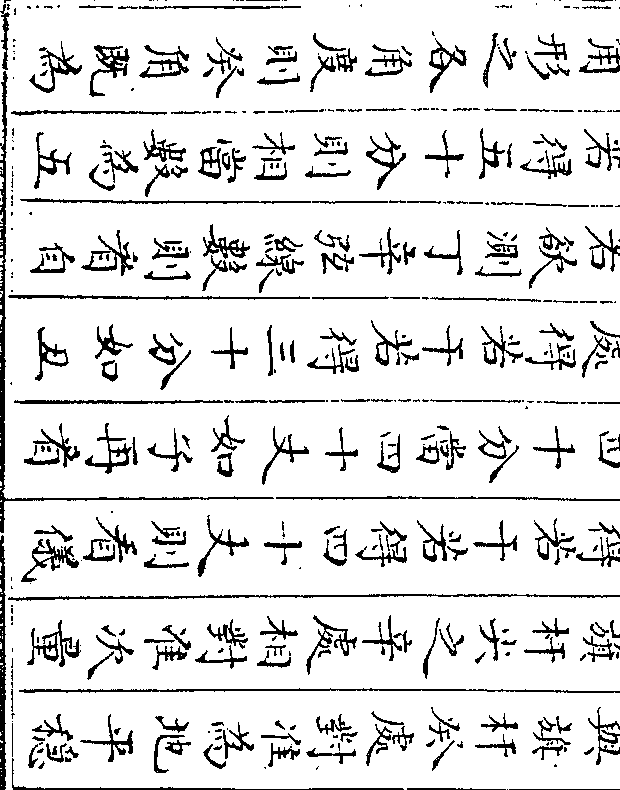 與旗杆癸處對准為地平穩
旗杆尖之辛處相對准次量
得若干若得四十丈則看儀
四十分當四十丈如子再看
處得若干若得三十分如丑
若欲測丁辛弦線數則看自
若得五十分則相當數為五
角形之各角度則癸角既為